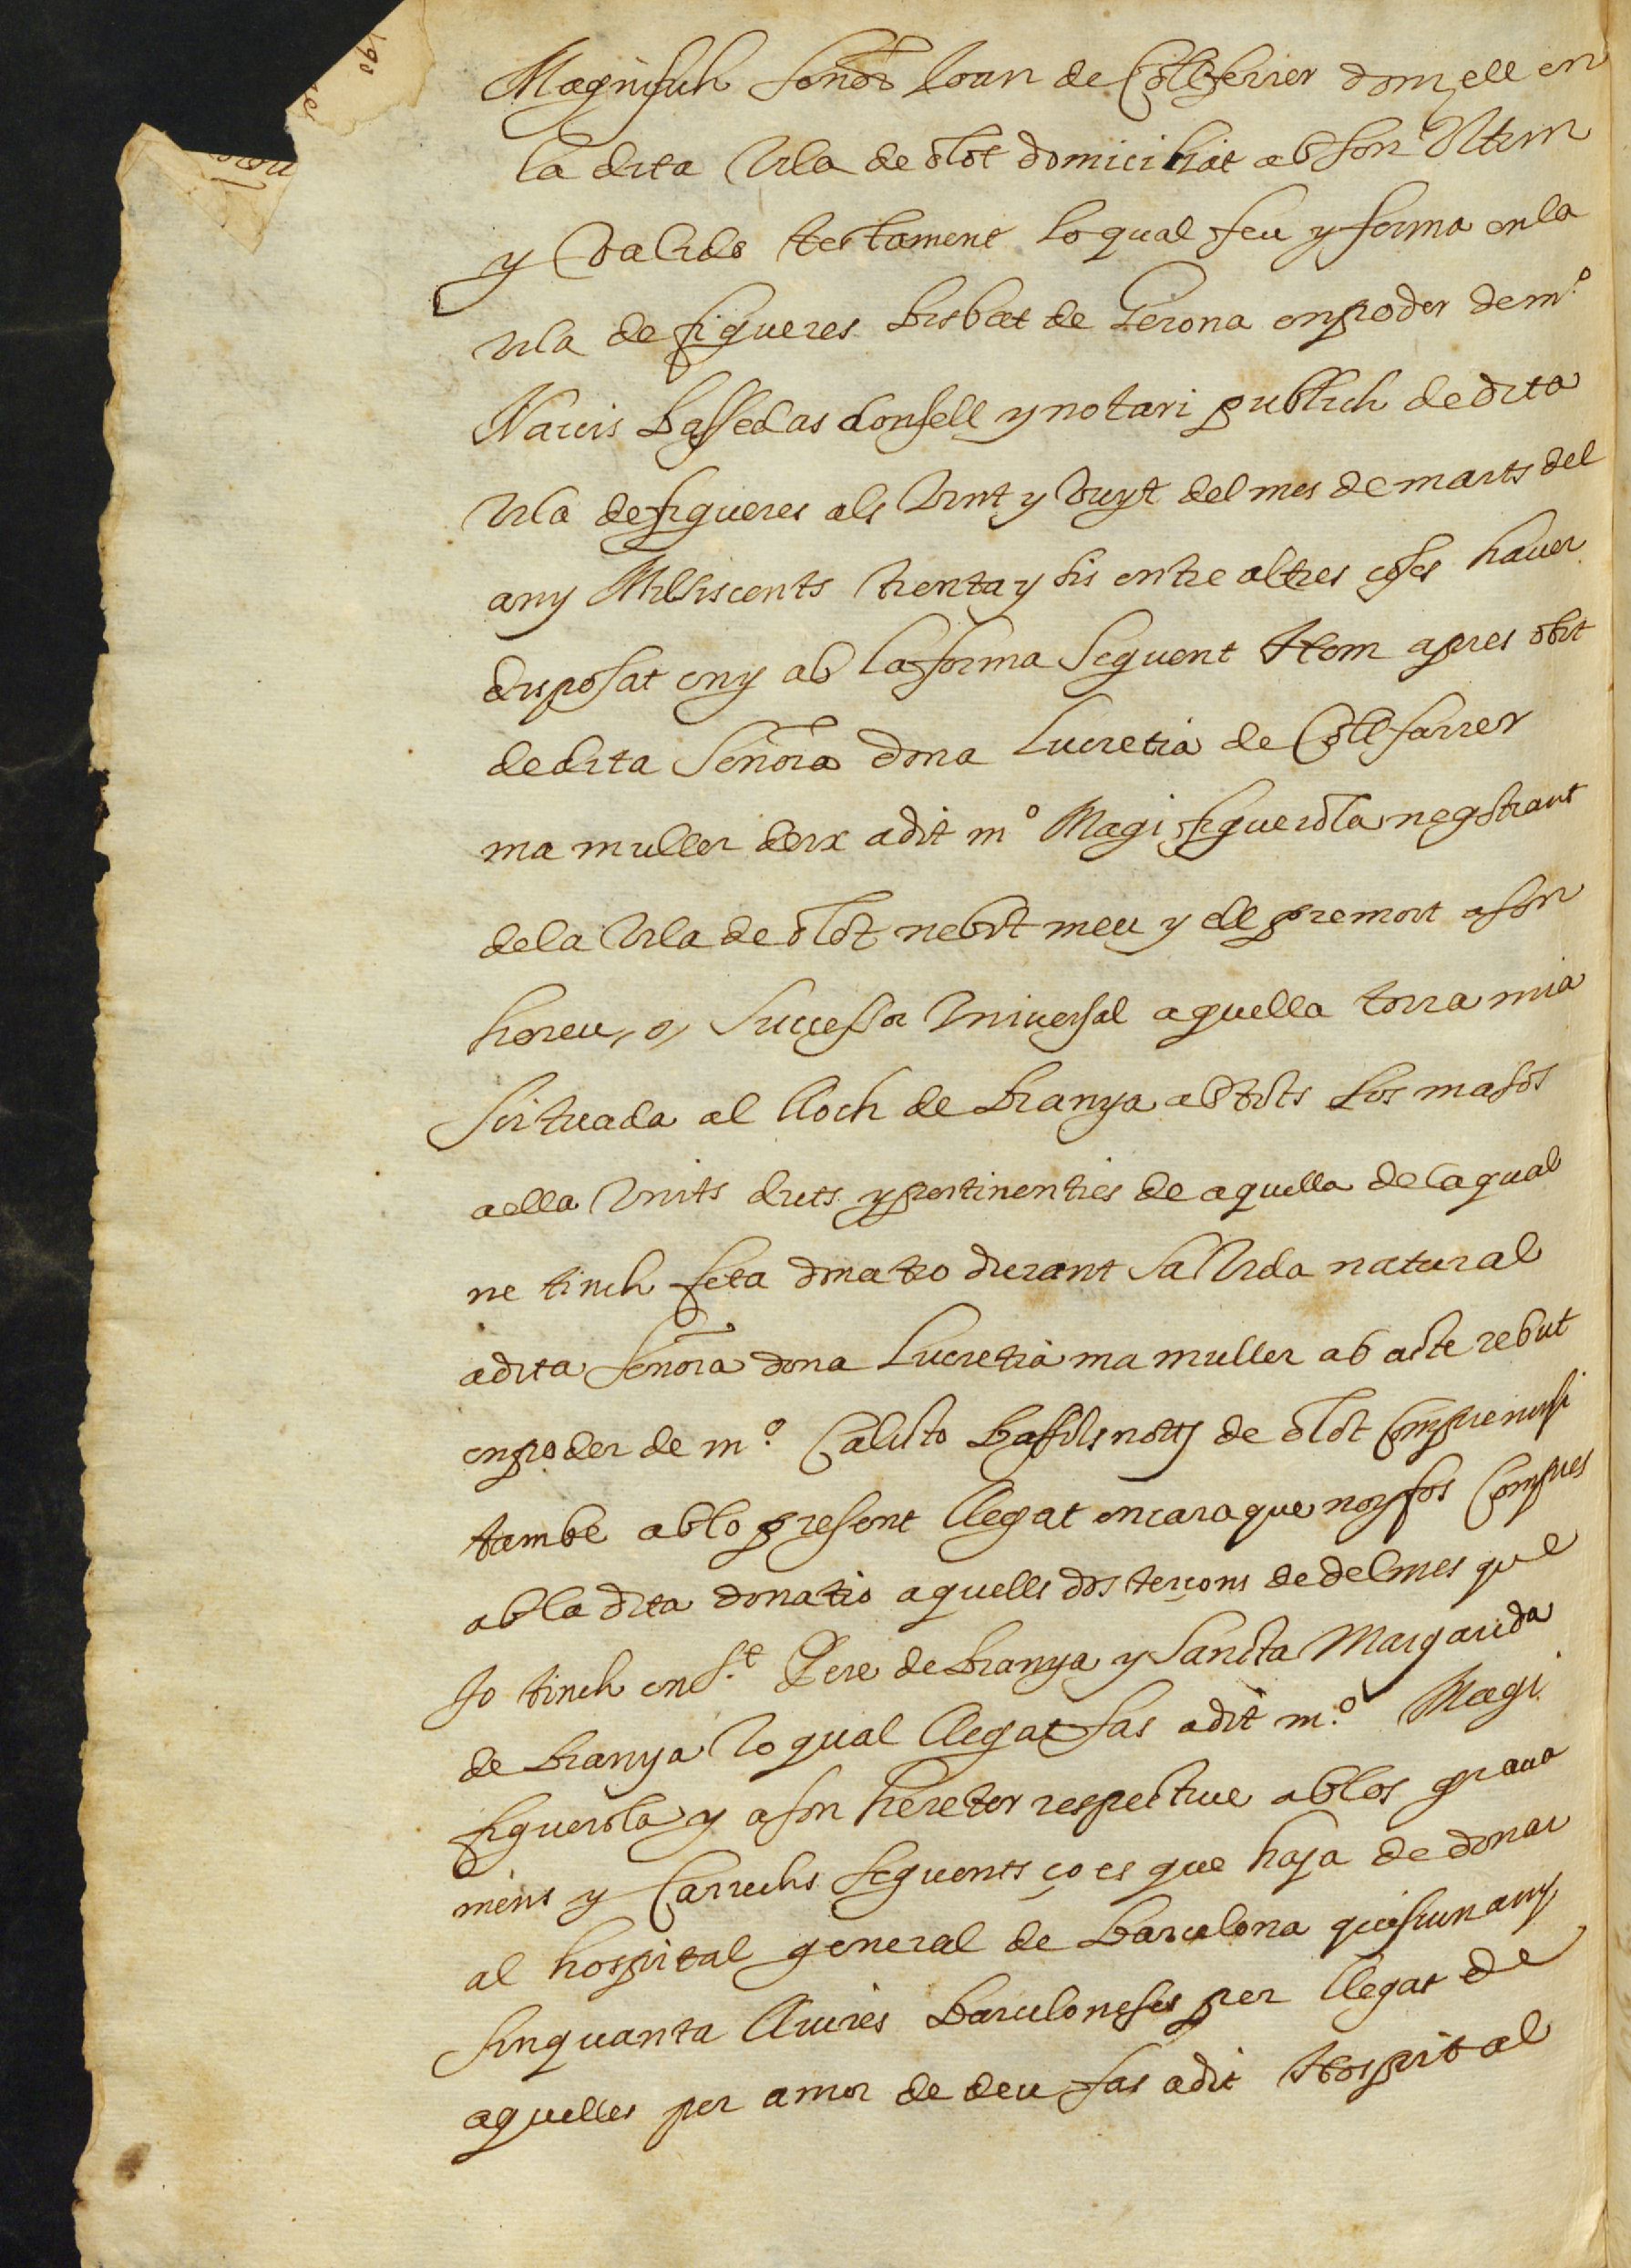 Magnifich señor Joan de Collferrer donzell en
la dita vila de olot domiciliat ab son ultim
y valido testament lo qual feu y ferma en la
vila de figueres bisbat de Gerona en poder de m.º
Narcis Bassedas donsell y notari publich de dita
vila de figueres als vint y vuyt del mes de marts del
any Mil siscents trenta y sis entre altres coses haver
disposat en y ab la forma seguent Item apres obit
de dita Señora dona Lucretia de Collfarrer
ma muller deix a dit mº Magi figuerola negotiant
de la vila de olot nebot meu y ell premort a son
hereu, o, successor universal aquella torra mia
scituada al lloch de Bianya ab tots los masos
a ella units drets y pertinenties de aquella de la qual
ne tinch feta donatio durant sa vida natural
a dita Señora dona Lucretia ma muller ab acte rebut
en poder de m.º Calisto Bassols nott de olot Comprenensi
tambe ab lo present llegat encara que noy fos Compres
ab la dita donatio aquells dos terçons de delmes que
Jo tinch en S.t Pere de Bianya y Sancta Margarida
de Bianya lo qual llegat fas a dit m.º Magi
figuerola y a son hereter respective ab los grava
mens y Carrechs seguents ço es que haja de donar
al hospital general de Barcelona quiscun any
sinquanta lliures Barceloneses per llegat de
aquelles per amor de deu fas a dit Hospital
190